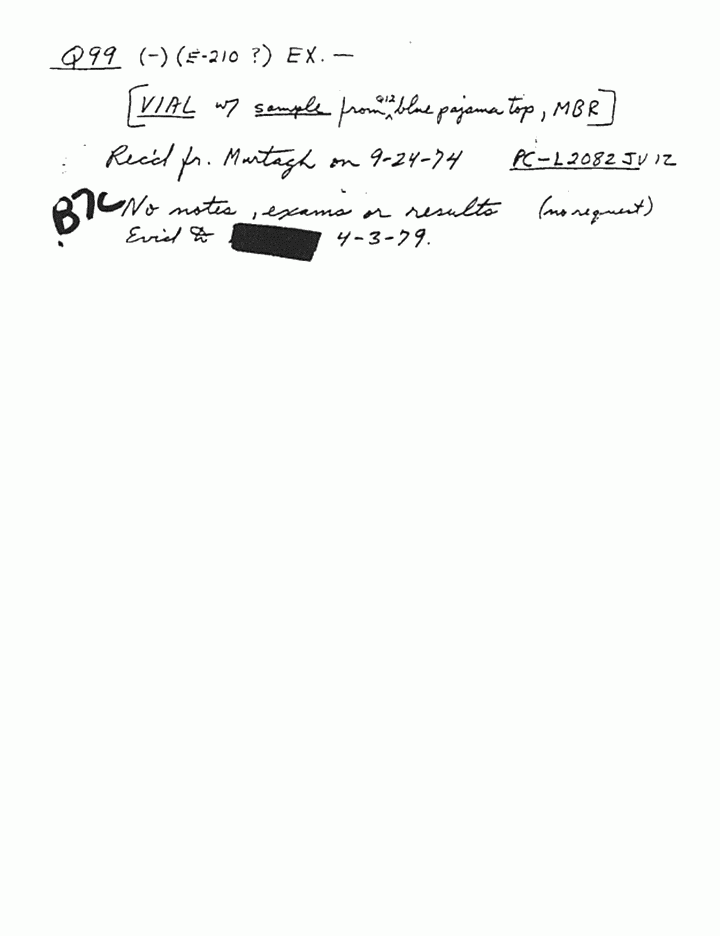 Q99 (-) (E-210 ?) EX. —
[VIAL w/ sample from Q12 blue pajama top, MBR]
Rec'd fr. Murtagh on 9-24-74 PC-L2082 JV 12
B7C No notes, exams or results (no request)
Evid to 4-3-79.